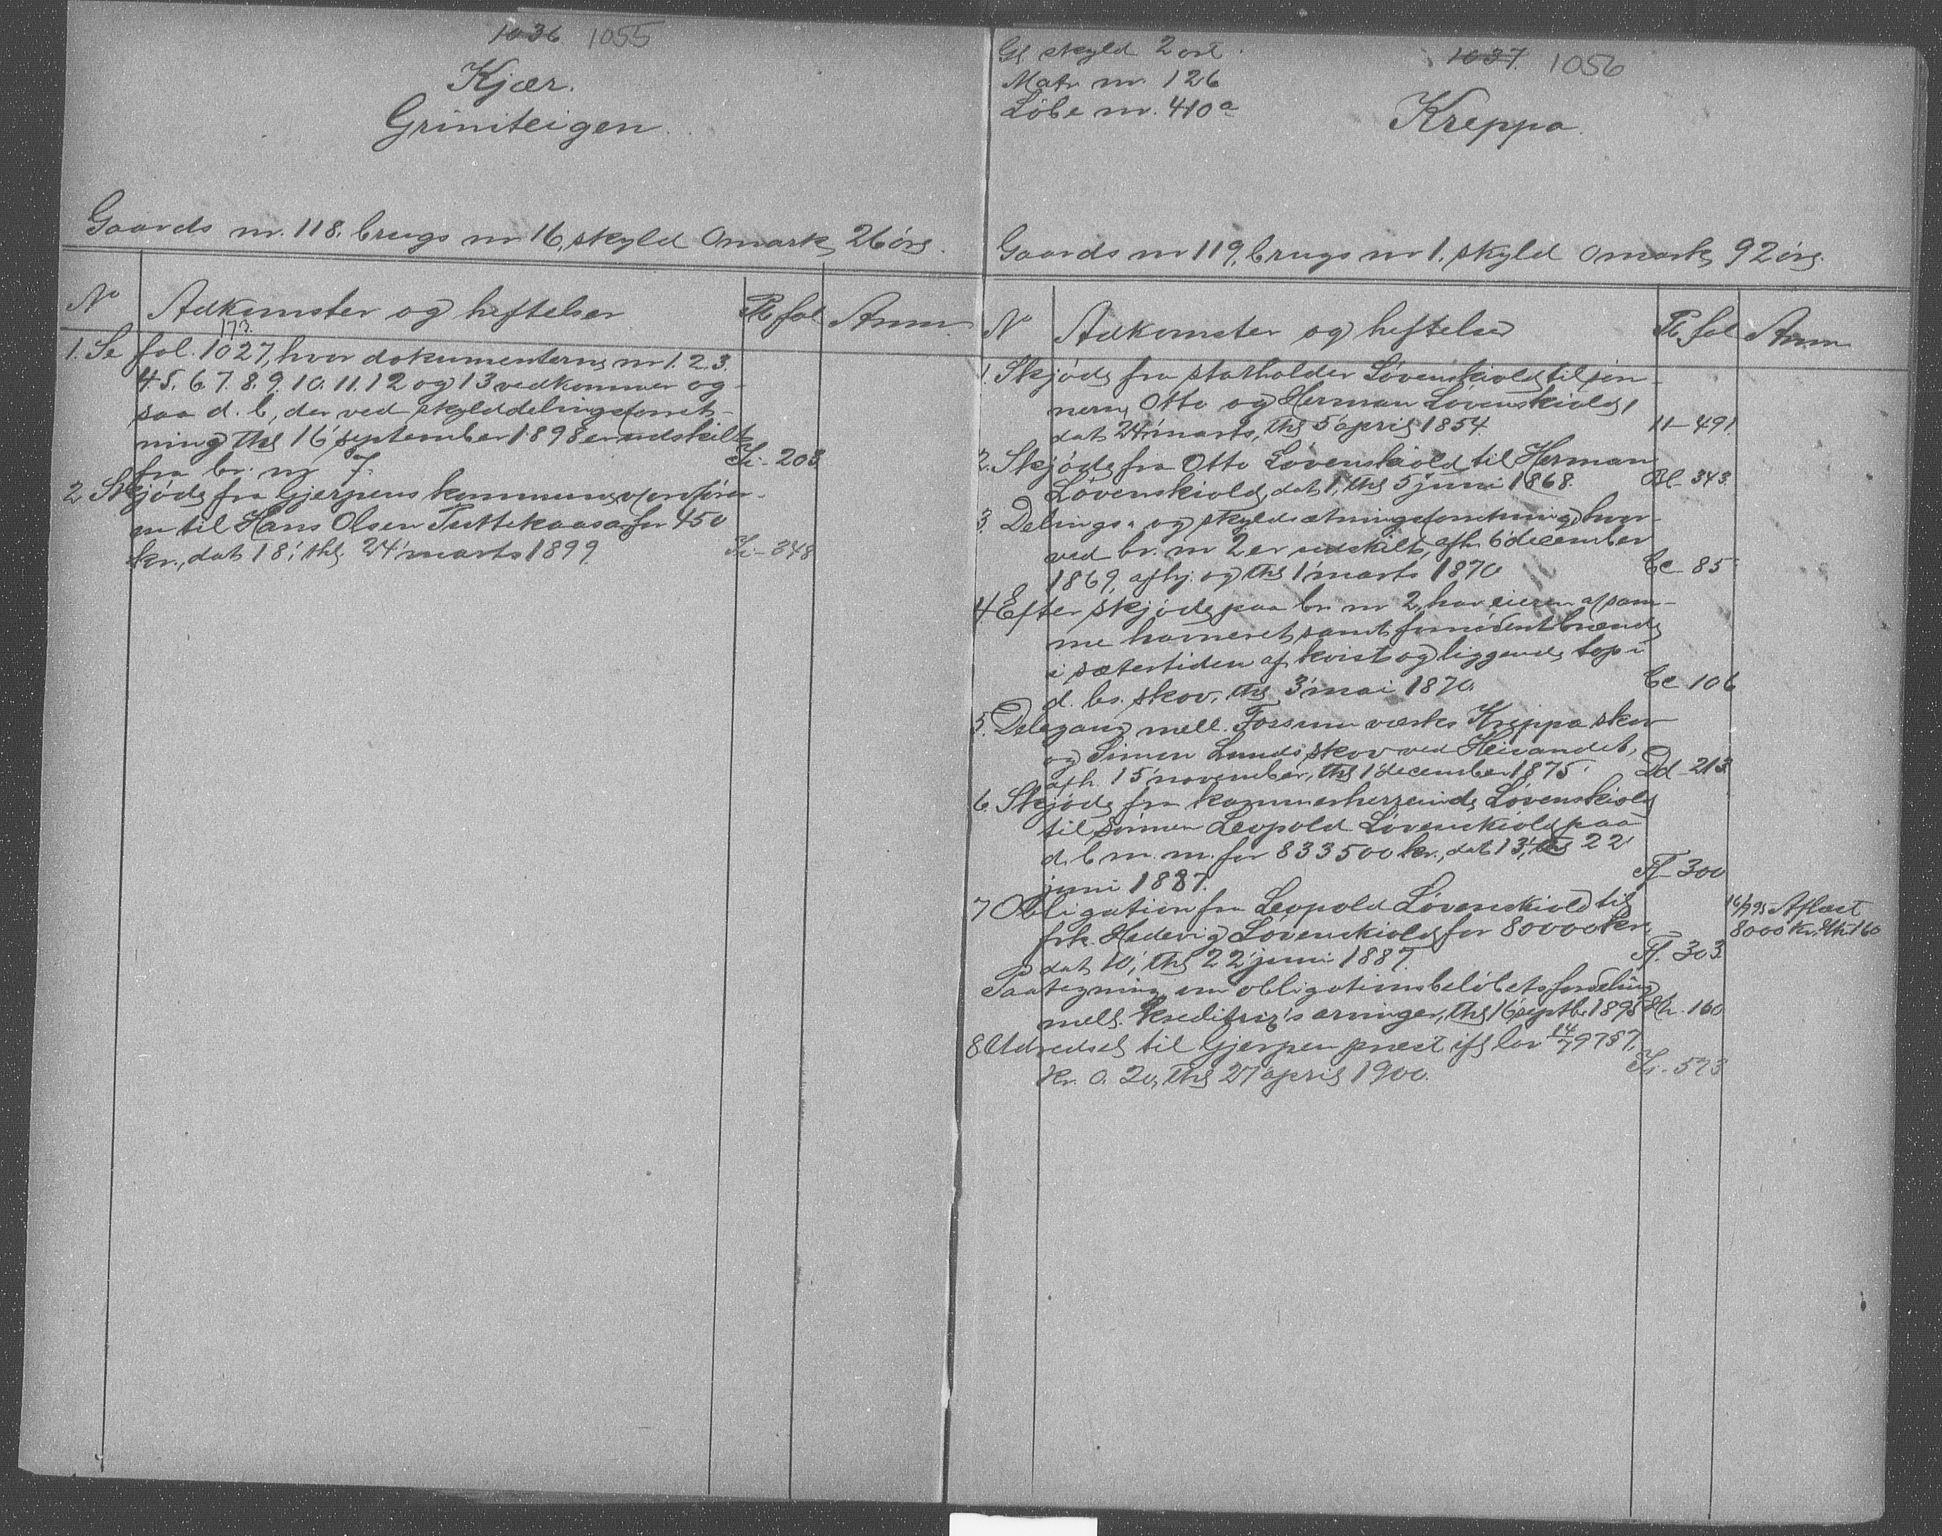 1036 1055
Kjær.
Griniteigen.
Gaards nr. 118, brugs nr 16, skyld 0 mark 26 öre.
No Adkomster og heftelser Pr fol Anm
173.
1. Se fol. 1027, hvor dokumenterne nr 1. 2. 3.
4. 5. 6. 7. 8. 9. 10. 11. 12 og 13 vedkommer og-
saa d. b., der ved skylddelingsforret-
ning thl 16' september 1898 er udskilt
fra br. nr 7. Fi - 203
2 Skjöde fra Gjerpens kommunes
til Hans Olsen Tuftekaasa for 450
kr., dat 18', thl 24' marts 1899. Fi - 348
Gl skyld 2 ort
Matr nr. 126
Löbe nr. 410a
1037. 1056
Kreppa
Gaards nr 119, brugs nr 1, skyld 0 mark 92 öre.
No Adkomster og heftelser Pr fol Anm
1. Skjöde fra statholder Lövenskiold til søn-
nerne Otto og Herman Lövenskiold,
dat 24' marts, thl 5' april 1854. 11 - 491.
2. Skjöde fra Otto Lövenskiold til Herman
Lövenskiold, dat 1', thl 5 juni 1868. Bl. 343.
3. Delings- og skyldsætningsforretning, hvor-
ved br. nr 2 er udskilt, afh. 6' december
1869, afhj. og thl 1' marts 1870 Cc - 85
4 Efter skjöde paa br nr 2 har eieren af sam-
me havneret samt fornödent brænde
i sætertiden af kvist og liggende top i
d. bs. skov, thl 3' mai 1870. Cc 106
5. Delegang mell. Fossum værks Kreppa skov
og Simon Lunds skov ved Heivandet,
afh. 15' november, thl 1' december 1875. Dd - 213
6. Skjöde fra kammerherreinde Lövenskiold
til sönnen Leopold Lövenskiold paa
d. b. m. m. for 833500 kr., dat 13', thl 22'
juni 1887. Ff - 300
7 Obligation fra Leopold Lövenskiold til 16/9 95 Aflæst
frk. Hedevig Lövenskiold for 80000 kr, 8000 Kr. Hh 160
dat 10', thl 22' juni 1887. Ff. 303.
Paategning om obligationsbelöbets fordeling
mell. kreditrix's arvinger, thl 16' septbr 1895 Hh. 160
8 Udredsel til Gjerpen præst ifl lov 14/7 97 § 7,
kr. 0. 20, thl 27 april 1900. Fi - 573